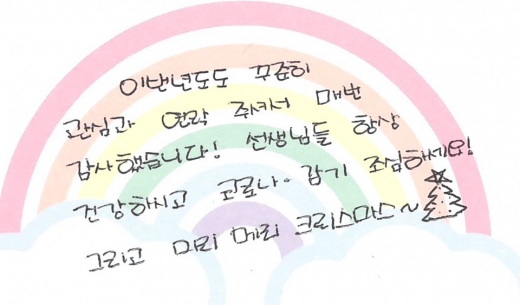 이번년도도 꾸준히
관심과 연락 주셔서 매번
감사했습니다! 선생님들 항상
건강하시고 코로나·감기 조심하세요!
그리고 미리 메리 크리스마스~